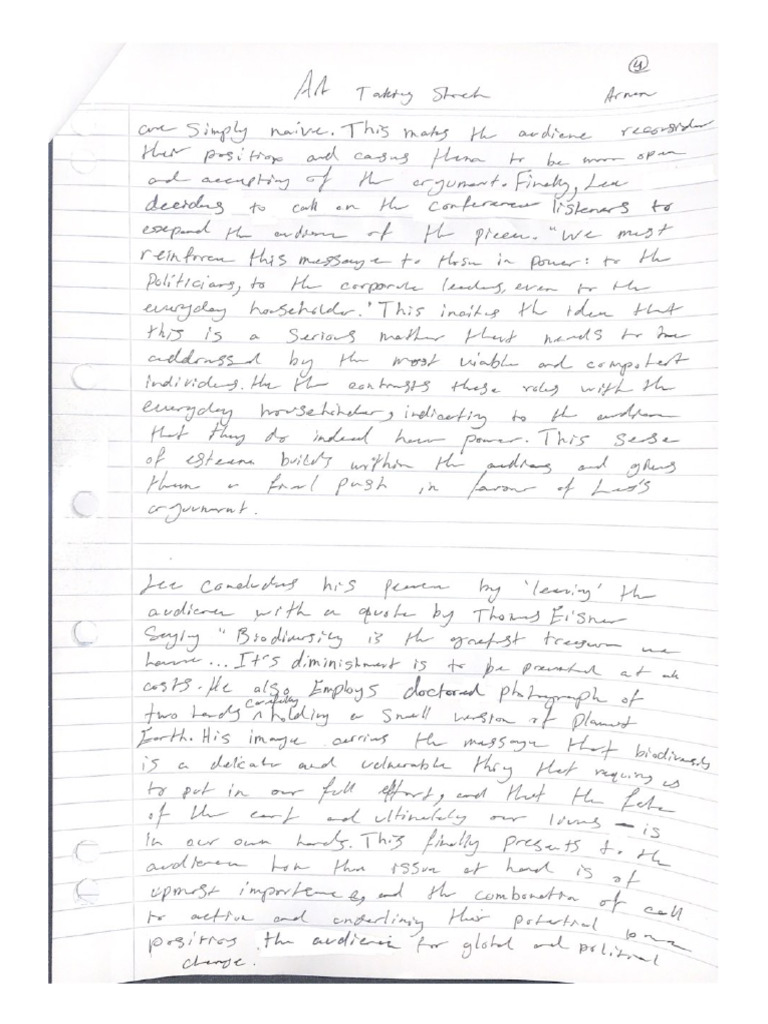 4
Art Taking Stock Arman
are simply naive. This makes the audience reconsider
their position and causes them to be more open
and accepting of the argument. Finally, Lee
decides to call on the conference listeners to
expand the audience of the piece. "We must
reinforce this message to those in power: to the
Politicians, to the corporate leaders, even to the
everyday householder." This incites the idea that
this is a serious matter that needs to be
addressed by the most viable and competent
individuals. He the contrasts these roles with the
everyday householder, indicating to the audience
that they do indeed have power. This sense
of esteem builds within the audience and gives
them a final push in favour of Lee's
argument.
Lee concludes his piece by 'leaving' the
audience with a quote by Thomas Eisner
saying "Biodiversity is the greatest treasure we
have... It's diminishment is to be prevented at all
costs. He also Employs doctored photograph of
two hands carefully holding a small version of planet
Earth. His image carries the message that biodiversity
is a delicate and vulnerable thing that requires us
to put in our full effort, and that the fate
of the earth and ultimately our lives - is
in our own hands. This finally presents to the
audience how the issue at hand is of
upmost importance, and the combination of call
to action and underlining their potential
positions the audience for global and political
change.